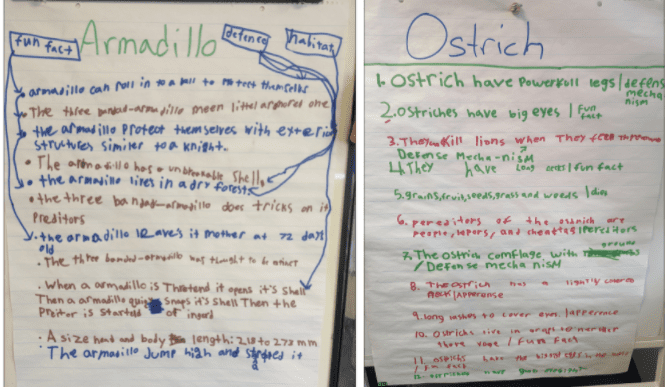 fun fact
Armadillo
defence
habitat
armadillo can roll in to a ball to protect themselfs
The three banded-armadillo meen littel armored one
the armadillo protect themselves with exterior
structures similar to a knight.
The armadillo has a unbreakable shell
the armadillo lives in a dry forests
the three banded-armadillo does tricks on it
preditors
the armadillo leaves it mother at 72 days
old
The three banded-armadillo was thought to be extinct
When a armadillo is it opens it's shell
Then a armadillo snaps it's shell Then the
is of
A size head and body length: 218 to 273 mm
The armadillo Jump high and it
Ostrich
1. Ostrich have powerfull legs/defens
mecha
nism
2. ostriches have big eyes / fun
fact
3. They kill lions when They feel
Defense Mecha-nism
4. They have long / fun fact
5. grains, fruit, seeds, grass and weeds / diet
6. pereditors of the ostrich are
people, and cheatas/pereditors
7. The ostrich comflage with
ground
/Defense mecha nism
8. The ostrich has a lightly
neck/
9. long lashes to cover
10. Ostrichs live in
there / fun fact
11. ostrichs have the in the
/ fun fact
12. ostriches have good